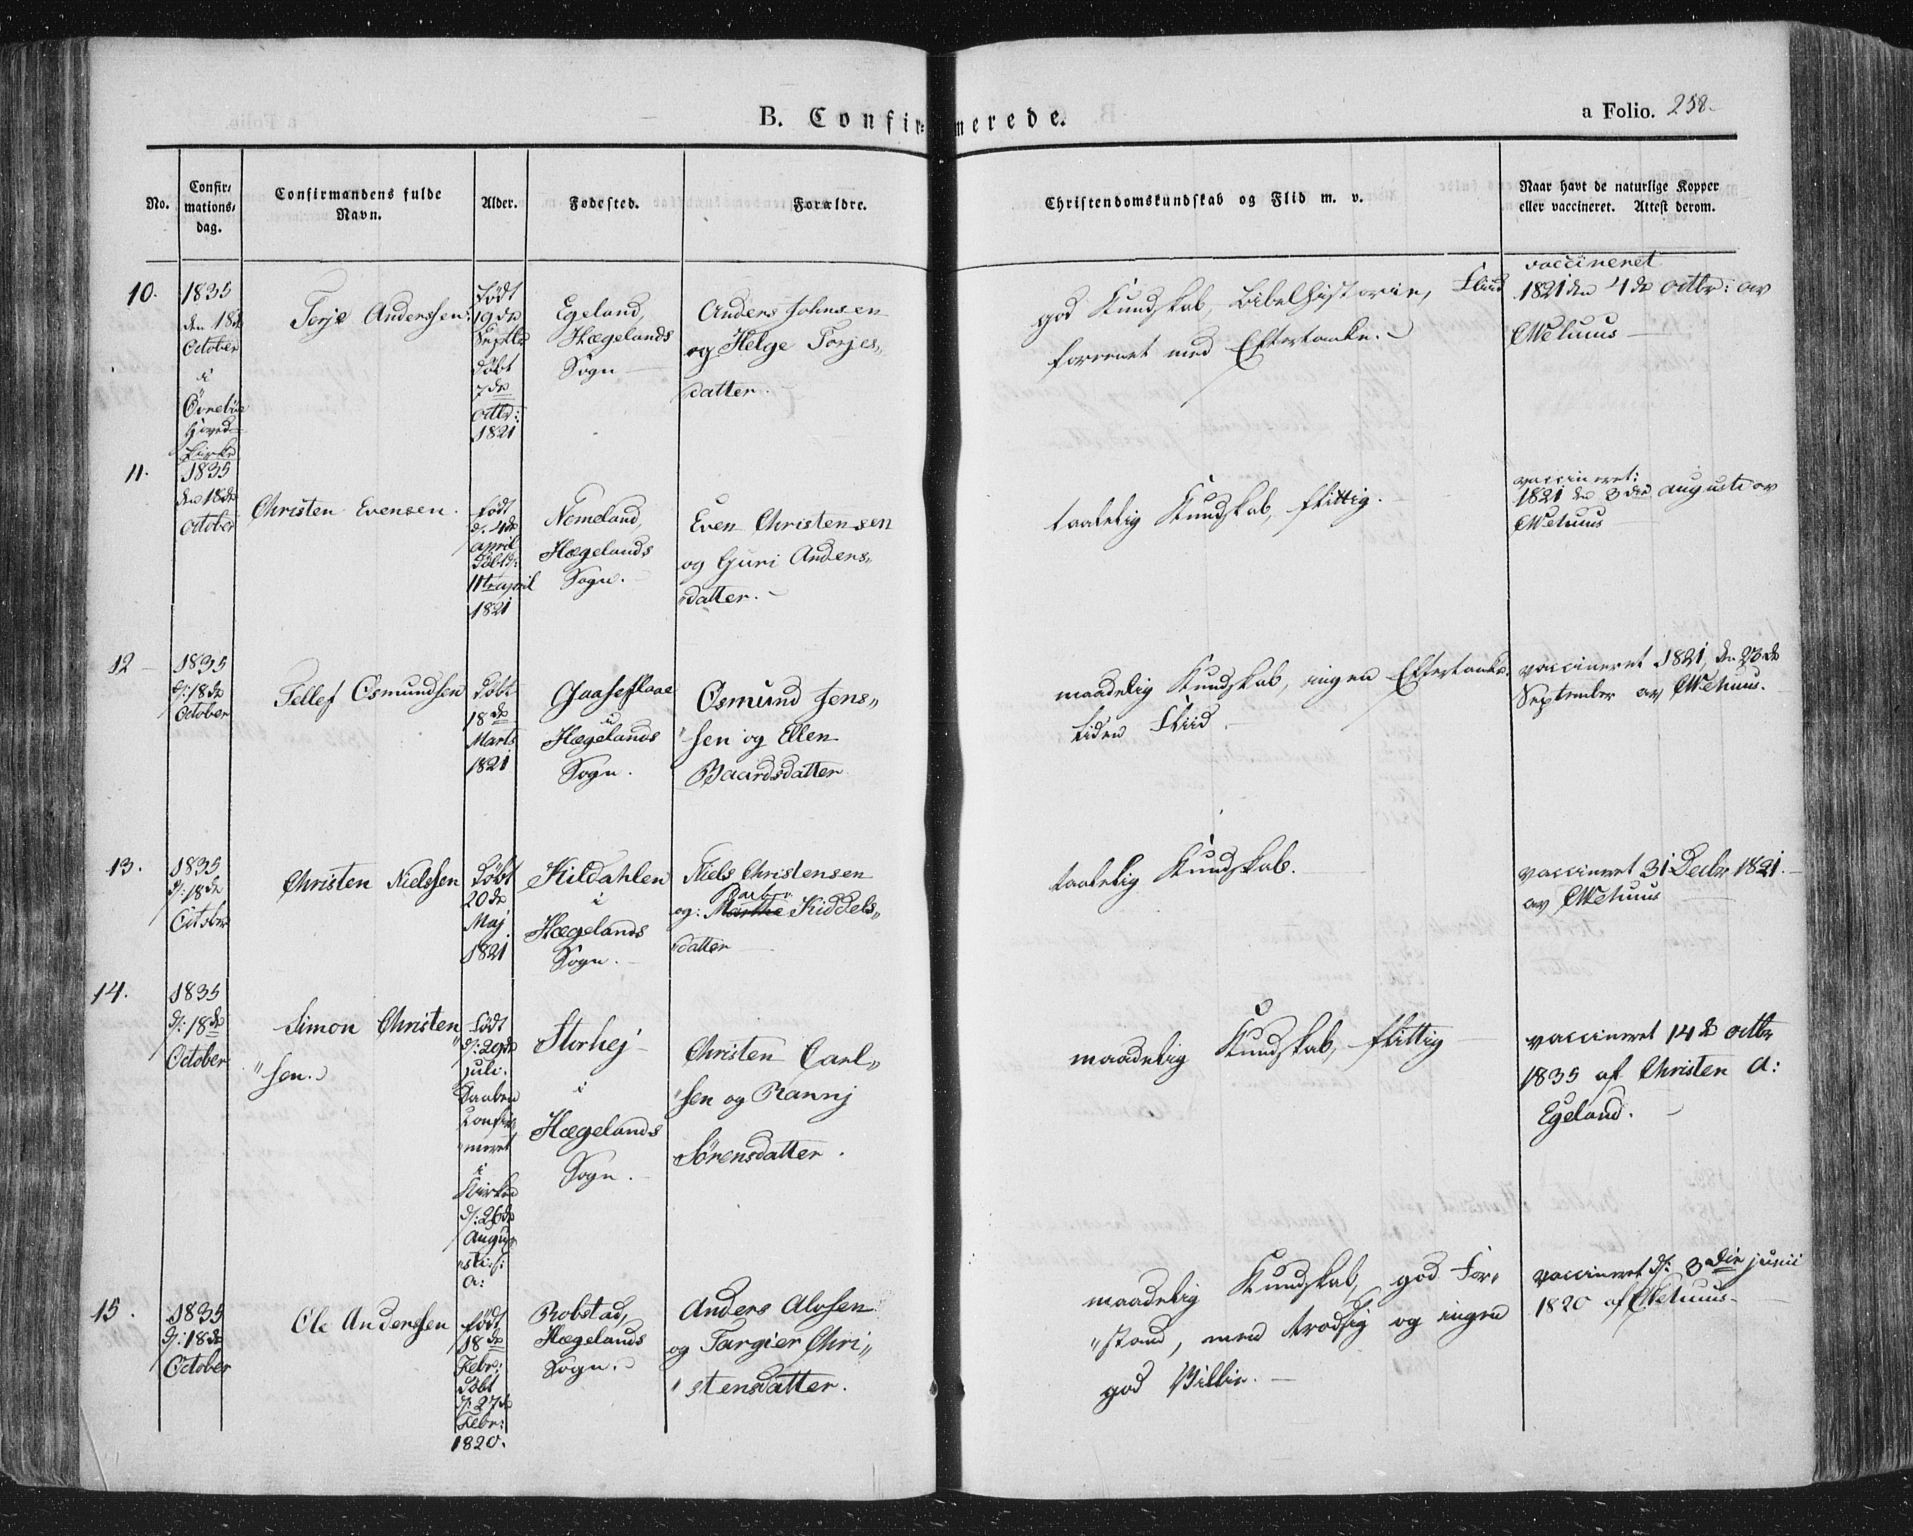 B. Confirmerede.
a Folio. 258.
No.
Confir-
mations-
dag.
Confirmandens fulde
Navn.
Alder.
Fødested.
Forældre.
Christendomskundskab og Flid m. v.
Naar havt de naturlige Kopper
eller vaccineret. Attest derom.
10.
1835
den 18de
October
i
Øvrebøe
Hoved-
Kirke
Terje Anderssen.
Født
19de
Septbr
Døbt
7de
octbr:
1821
Egeland,
Hægelands
Sogn
Anders Johnsen
og Helge Torjes„
datter.
god Kundskab, Bibelhistorie, Fliid
forenet med Eftertanke.
vaccineret
1821 den 4de octbr: av
11.
1835
den 18de
October
Christen Evensen.
født
d. 4de
april
Døbt d:
11te april
1821
Nomeland,
Hægelands
Sogn.
Even Christensen
og Guri Anders„
datter.
taalelig Kundskab, flittig.
vaccineret:
1821 den 3die augusti av
12
1835
d: 18de
October
Tellef Osmundsen
Døbt
18de
Marts
1821
Gaaseflaae
i
Hægelands
Sogn.
Osmund Jens„
sen og Ellen
Baardsdatter
maadelig Kundskab, ingen Eftertanke
liden Fliid
vaccineret 1821, den 23de
September av
13.
1835
d: 18de
October
Christen Nielssen
Døbt
20de
Maj
1821
Kildahlen
i
Hægelands
Sogn.
Niels Christensen
Barbro
og: Marthe Kiddels„
datter
taalelig Kundskab.
vaccineret 31 Decbr 1821.
av
14.
1835
d: 18de
October
Simon Christen„
„sen.
født
d: 29de
juli.
Daaben
Confir„
meret
i
Kirken
d: 26de
Augu„
sti s:
a:
Storhej
i
Hægelands
Sogn.
Christen Carl„
„sen og Rannj
Sørensdatter.
maadelig Kundskab, flittig
vaccineret 14de octbr
1835 af Christen A:
Egeland.
15.
1835
d: 18de
October
Ole Anderssen
født
18de
Febr:
Døbt
d: 27de
Febr:
1820.
Robstad,
Hægelands
Sogn.
Anders Alvsen
og Targier Chri„
„stensdatter.
maadelig Kundskab, god For„
„stand, men trodsig og ingen
god Villie.
vaccineret d: 3die junii
1820 af